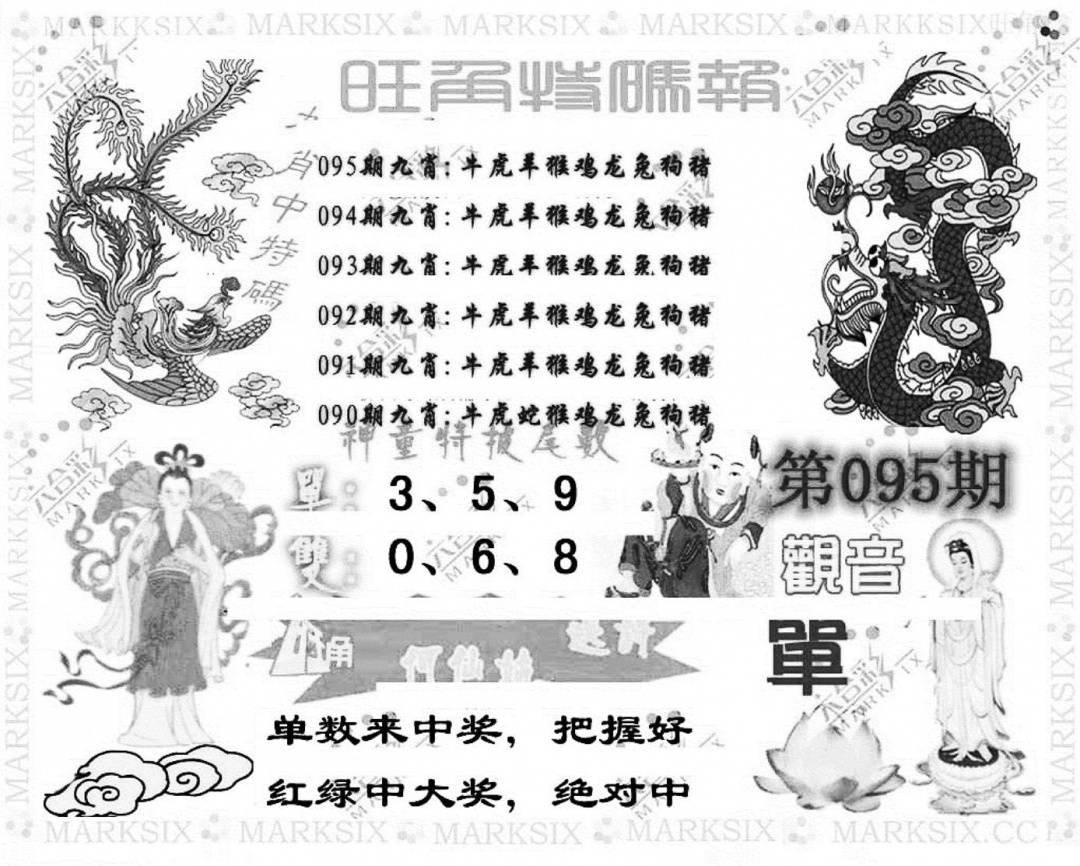 MARKSIX MARKSIX MARKSIX MARKSIX MARKKSIX
旺角特碼報
肖中特碼
095期九肖：牛虎羊猴鸡龙兔狗猪
094期九肖：牛虎羊猴鸡龙兔狗猪
093期九肖：牛虎羊猴鸡龙兔狗猪
092期九肖：牛虎羊猴鸡龙兔狗猪
091期九肖：牛虎羊猴鸡龙兔狗猪
090期九肖：牛虎蛇猴鸡龙兔狗猪
神童特披尾數
單：3、5、9
雙：0、6、8
第095期
觀音
單
何仙姑
单数来中奖，把握好
红绿中大奖，绝对中
MARKSIX MARKSIX MARKSIX MARKSIX MARKSIX.CC